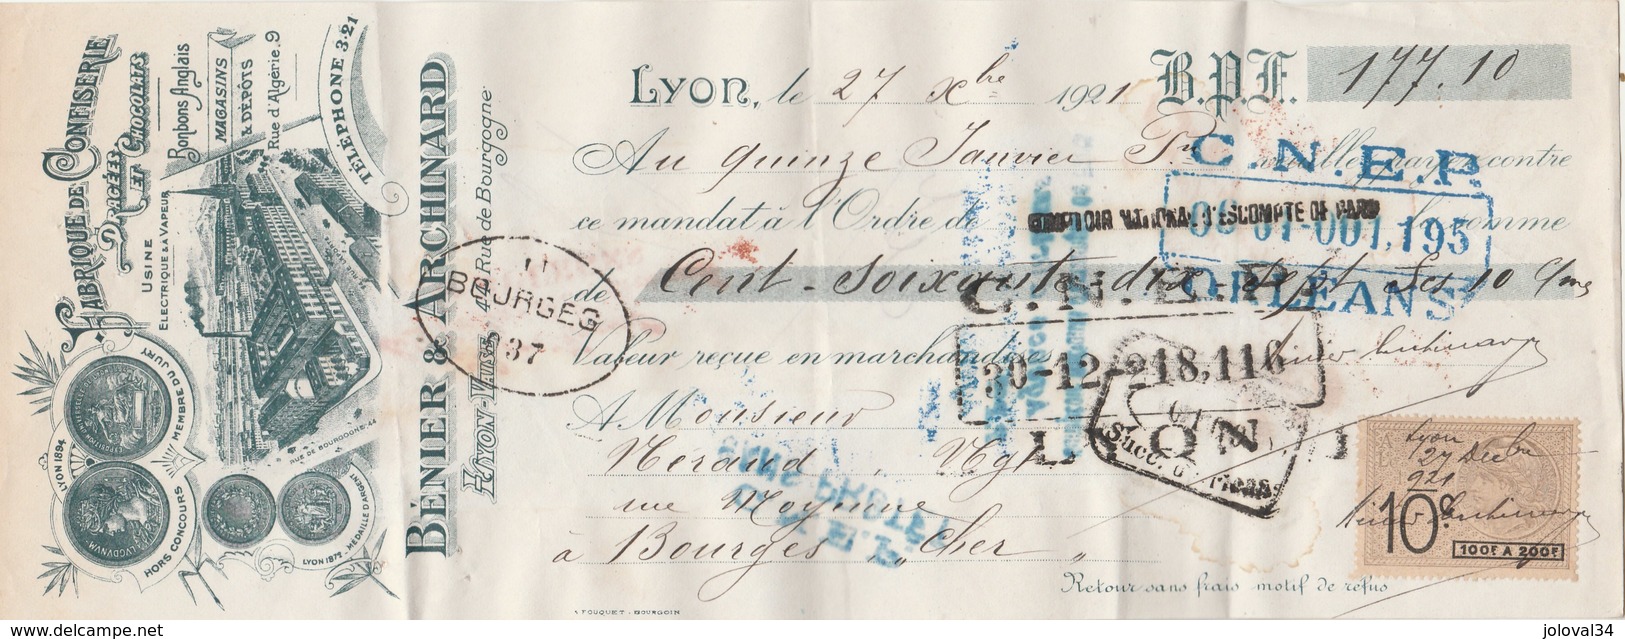 FABRIQUE DE CONFISERIE
DRAGÉES
ET CHOCOLATS
Bonbons Anglais
MAGASINS
& DÉPÔTS
Rue d'Algérie.9
TÉLÉPHONE 3-21
USINE
ELECTRIQUE & A VAPEUR
RUE DE BOURGOGNE. 44
LYON 1894
HORS CONCOURS
MEMBRE DU JURY
LUGDVNVM
LYON 1872
MÉDAILLE D'ARGENT
BÉNIER & ARCHINARD
LYON-VAISE 44 Rue de Bourgogne
Lyon, le 27 Xbre 1921 B.P.F. 177.10
Au quinze Janvier Pn
ce mandat à l'Ordre de
COMPTOIR NATIONAL D'ESCOMPTE DE PARIS
comme
de Cent Soixante dix Sept frs 10 c/mes
Valeur reçue en marchandises
A Monsieur
Meraud, Ngt
rue Moyenne
à Bourges, Cher
Retour sans frais motif de refus
C.N.E.P.
ORLEANS
C.N.E.P.
30-12-2 18,116
LYON
BOURGES
37
Lyon
27 Décbre
921
10c
100F A 200F
A FOUQUET - BOURGOIN
www.delcampe.net
joloval34